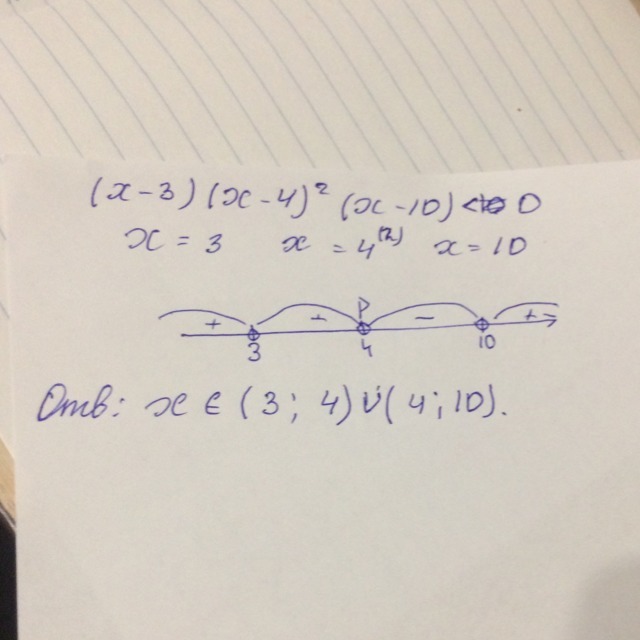 (x-3)(x-4)² (x-10) < 0
x = 3 x = 4⁽²⁾ x = 10
+ + - +
3 4 10
Отв: x ∈ (3; 4) ∪ (4; 10).